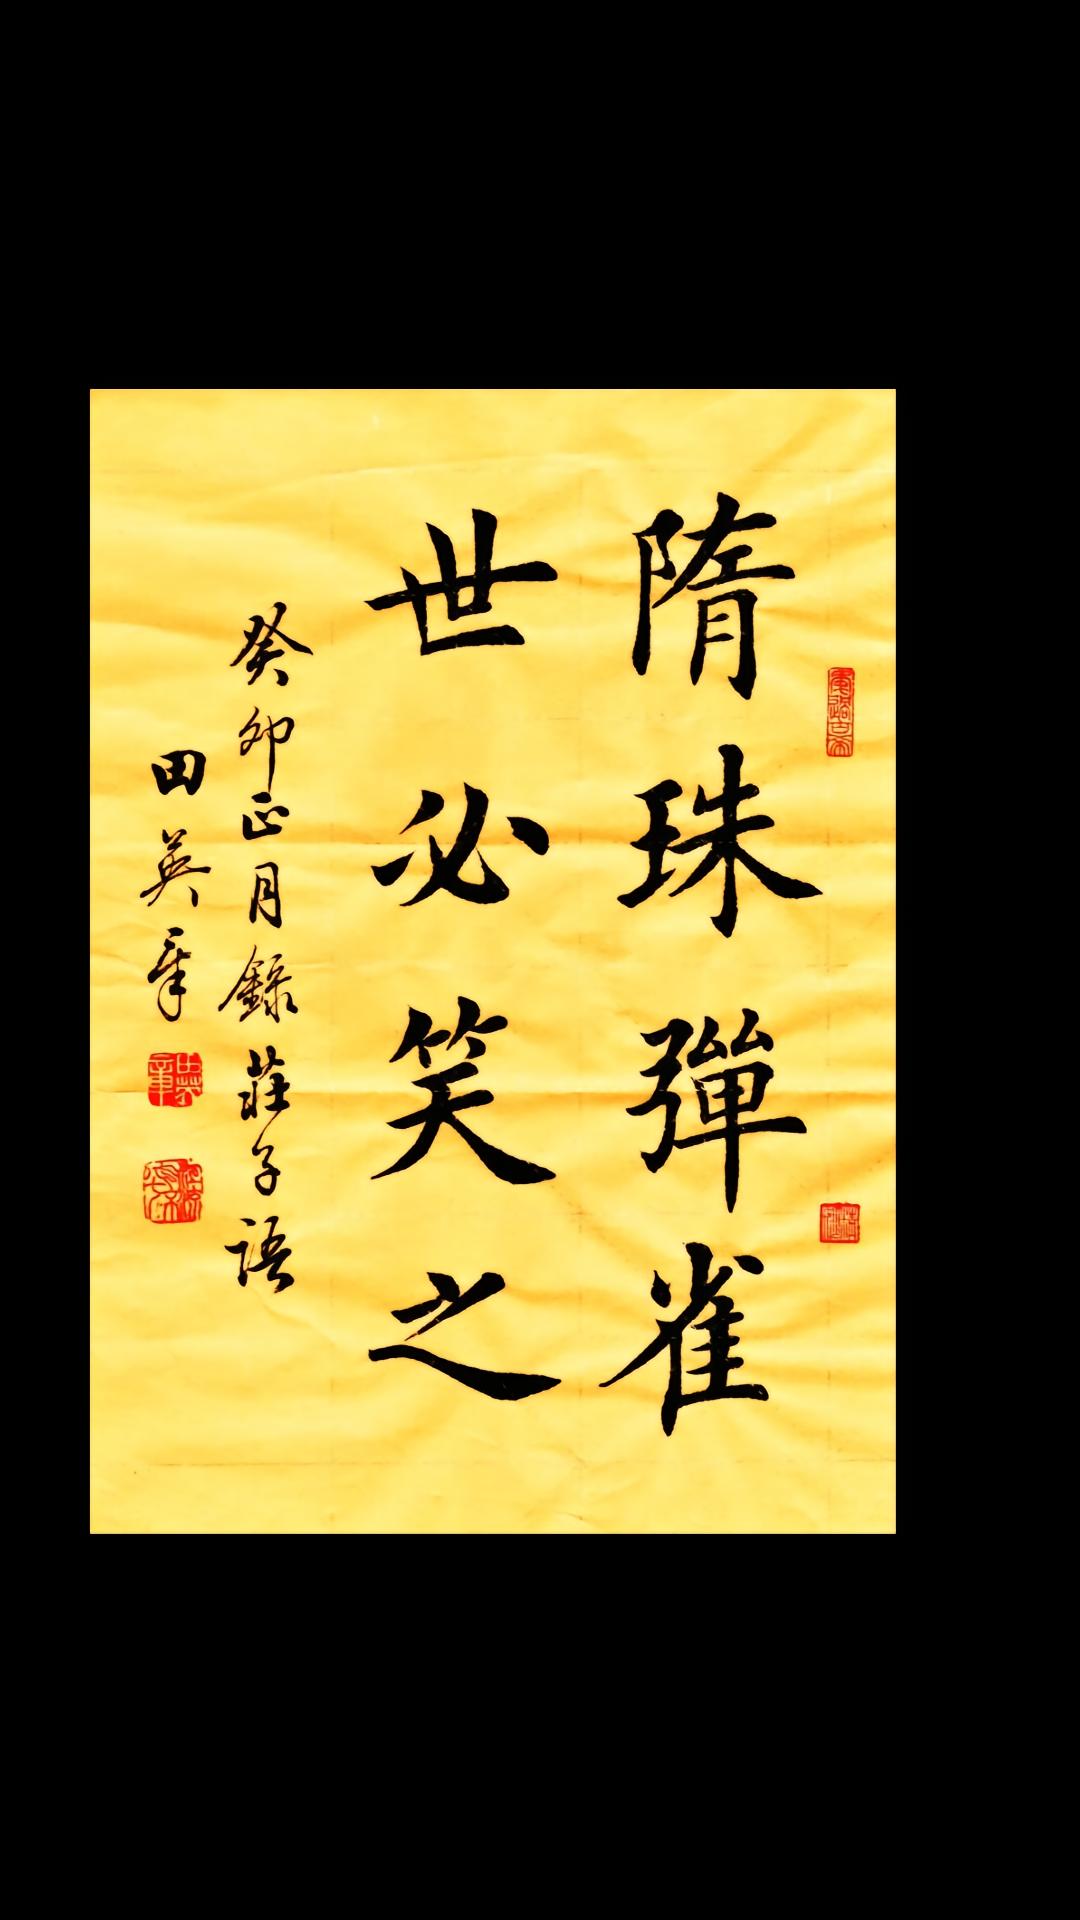 隋珠彈雀
世必笑之
癸卯正月錄莊子語
田英章